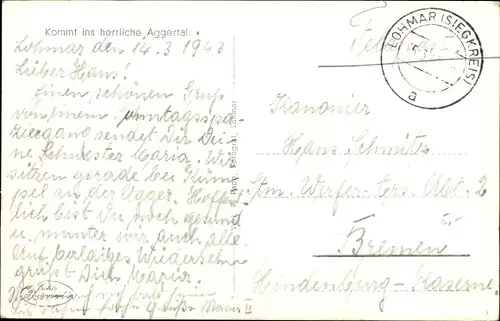 Kommt ins herrliche Aggertal.
Lohmar den 14.3 1943
Lieber Hans!
Einen schönen Gruß
von einem Sonntagsspa-
ziergang sendet Dir Dei-
ne Schwester Maria. Wir
sitzen gerade bei Küm-
pel an der Agger. Hoffen-
lich bist Du noch gesund
u. munter wir auch alle.
Auf baldiges Wiedersehn
grüßt Dich Maria.
Grüße Maria II
Echte
Feldpost
LOHMAR (SIEGKREIS)
a
Kanonier
Hans Schmitz
Stm. Werfer-Ers. Abt. 2
5,-
Bremen
Hindenburg-Kaserne